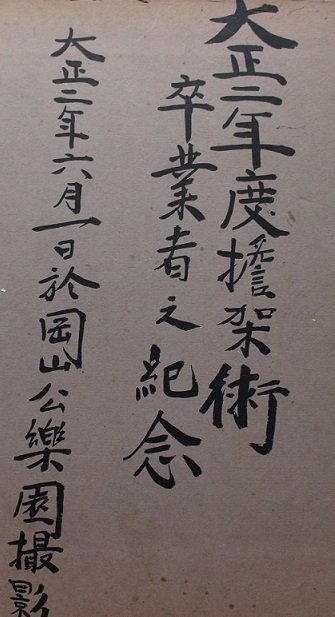 大正二年度擔架術
卒業者之紀念
大正二年六月一日於岡山公樂園撮影